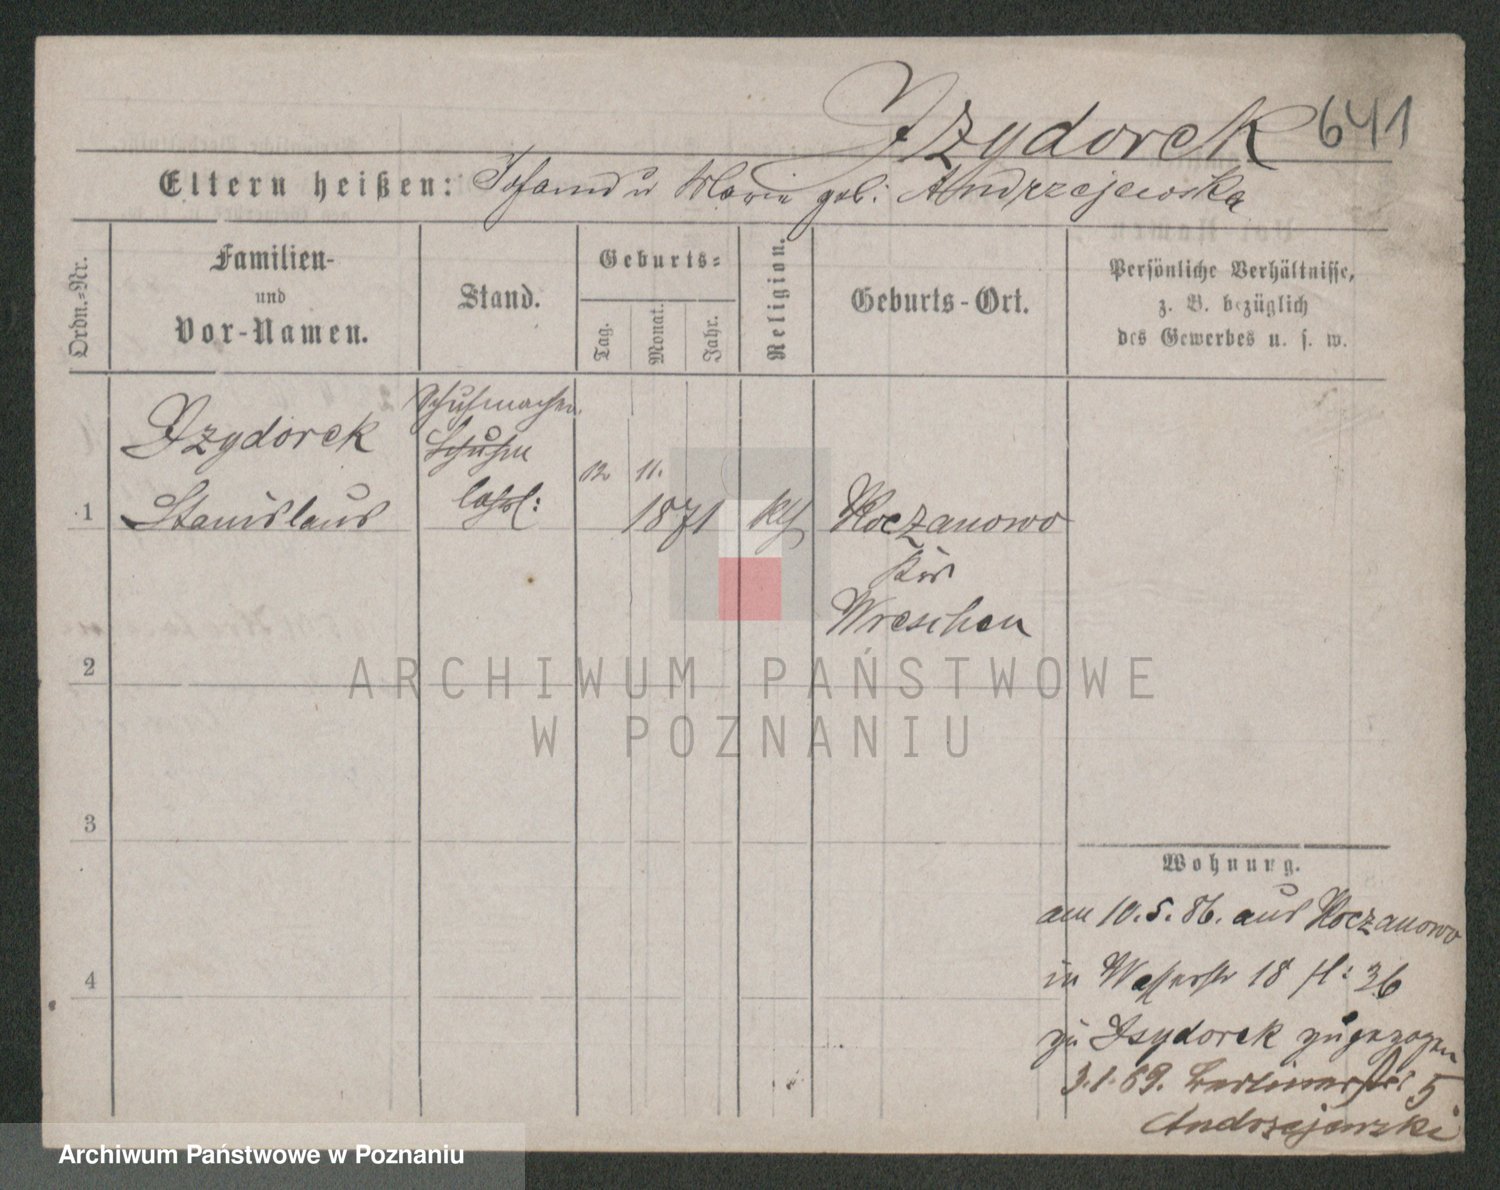 Izydorek 641
Eltern heißen: Johann u Marie geb: Andrzejewska
Ordn.-Nr.
Familien-
und
Vor-Namen.
Stand.
Geburts-
Tag.
Monat.
Jahr.
Religion.
Geburts-Ort.
Persönliche Verhältnisse,
z. B. bezüglich
des Gewerbes u. s. w.
Izydorek
Schuhmacher
Schuhm
12 11.
1 Stanislaus
lehrl:
1871 kth Koczanowo
Krs
Wreschen
2
3
4
Wohnung.
am 10.5.86. aus Koczanowo
in Wasserstr 18 fl: 36
zu Isydorek zugezogen
3.1.89. Berlinerstr 5
Andrzejewski
ARCHIWUM PAŃSTWOWE
W POZNANIU
Archiwum Państwowe w Poznaniu